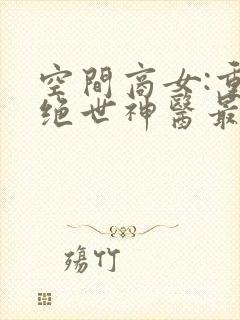 空間商女:重
绝世神醫最
殤竹